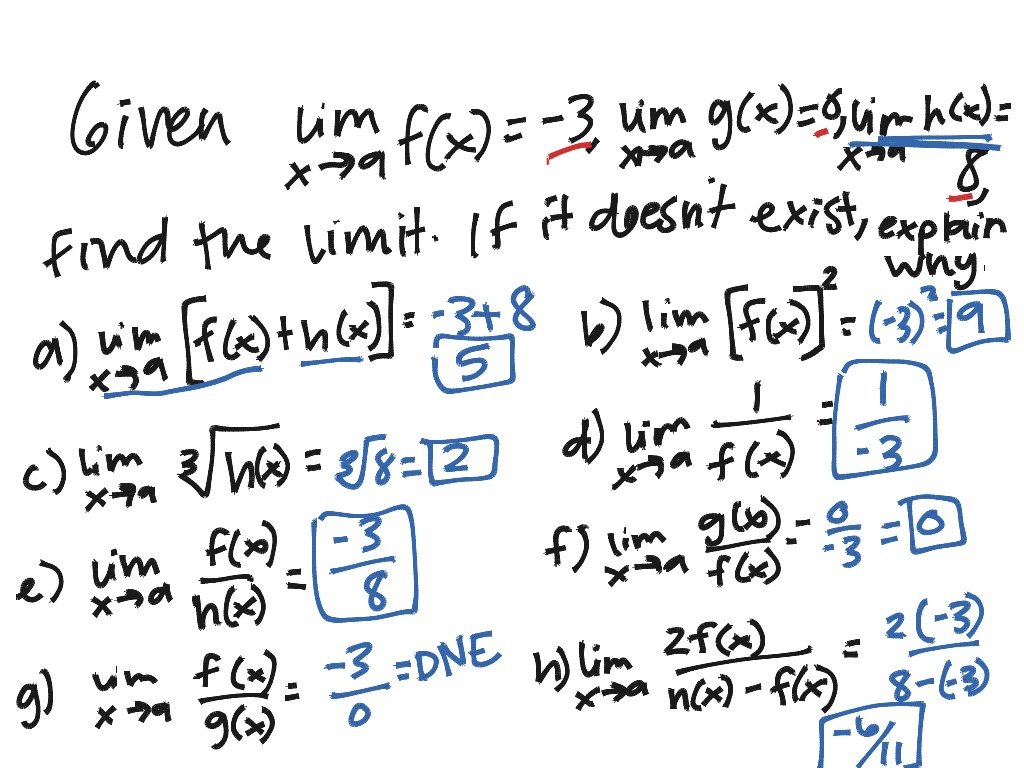 Given lim x→a f(x) = -3, lim x→a g(x) = 0, lim x→a h(x) = 8,
find the limit. If it doesn't exist, explain why.
a) lim x→a [f(x) + h(x)] = -3 + 8
5
b) lim x→a [f(x)]² = (-3)² = 9
c) lim x→a ∛h(x) = ∛8 = 2
d) lim x→a 1/f(x) = 1/-3
e) lim x→a f(x)/h(x) = -3/8
f) lim x→a g(x)/f(x) = 0/-3 = 0
g) lim x→a f(x)/g(x) = -3/0 = DNE
h) lim x→a 2f(x)/h(x) - f(x) = 2(-3)/8-(-3)
-6/11